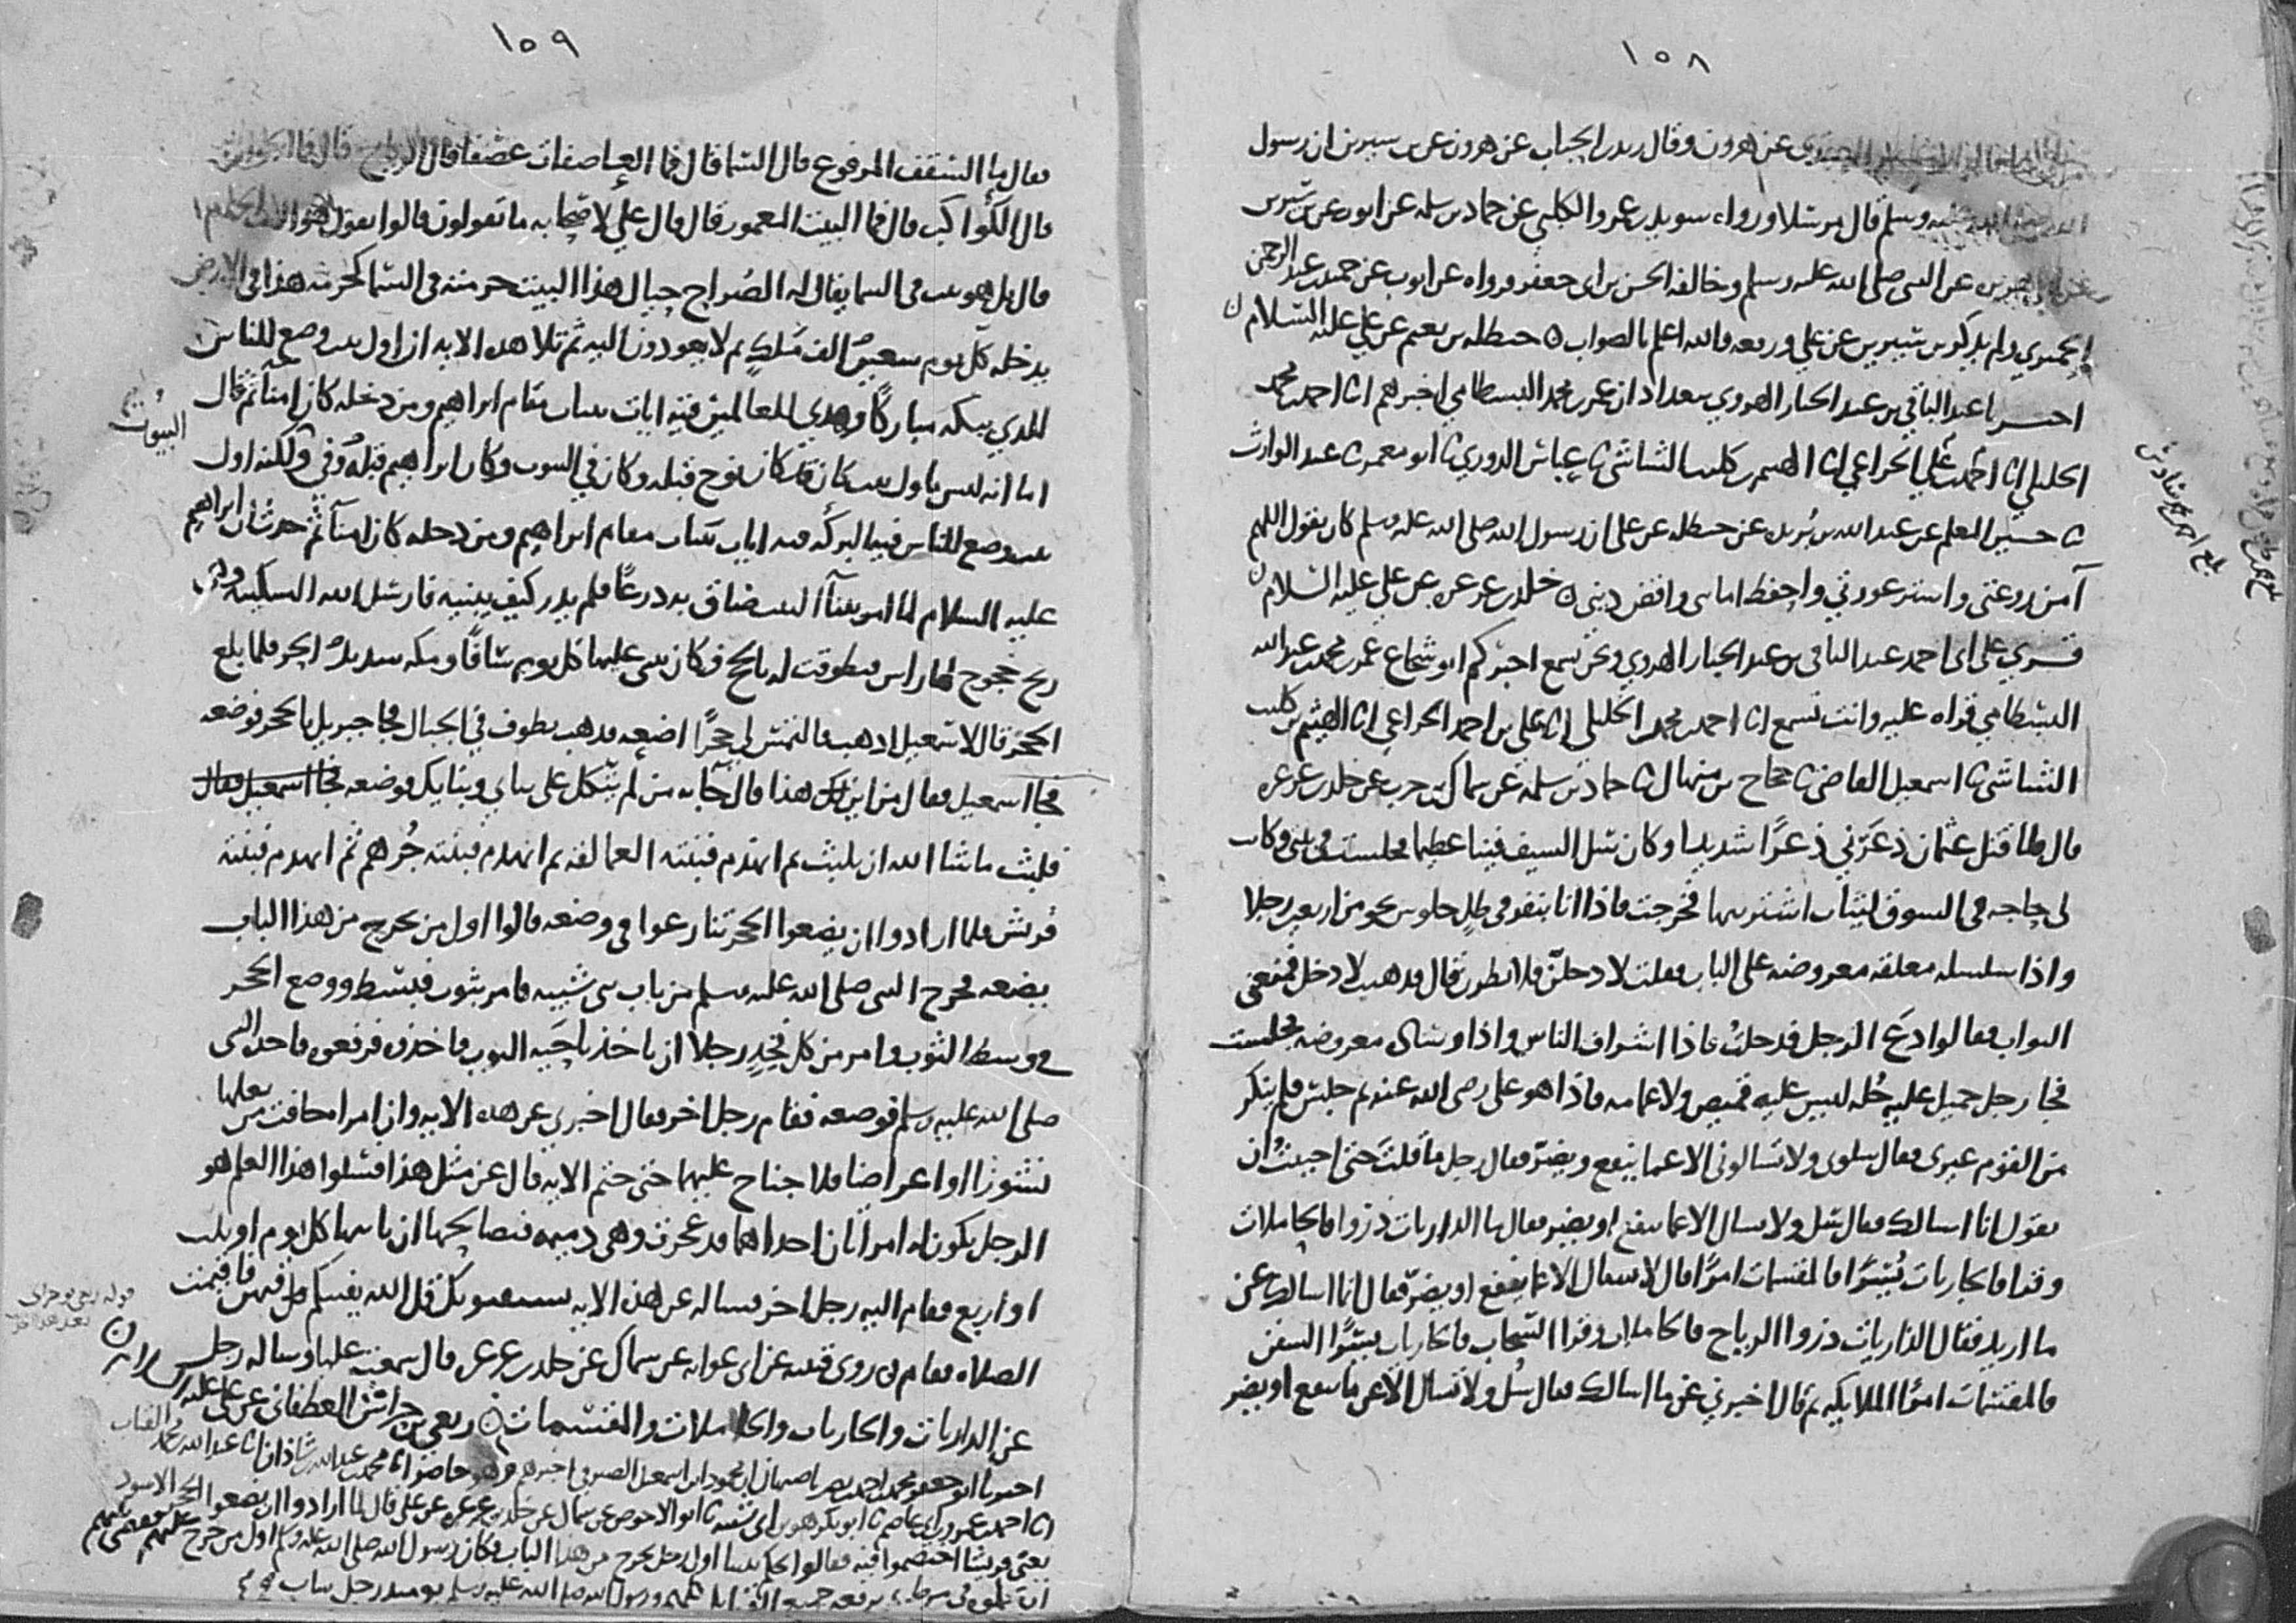 ١٥٨
عن هرون وقال زيد بن الحباب عن هرون عن بن سيرين ان رسول
الله صلى الله عليه وسلم قال مرسلا ورواه سويد بن عمرو الكلبي عن حماد بن سلمه عن ايوب عن بن سيرين
عن النبي صلى الله عليه وسلم وخالفه الحسن بن ابي جعفر فرواه عن ايوب عن حميد بن عبد الرحمن
الحميري ولم يذكر بن سيرين عن علي ورفعه والله اعلم بالصواب ه حنظله بن نعيم عن علي عليه السلام ن
اخبرنا عبد الباقي بن عبد الجبار الهروي ببغداد ان عمر بن محمد البسطامي اخبرهم انا احمد بن محمد
الخليلي انا احمد بن علي الخزاعي انا الهيثم بن كليب الشاشي نا عباس الدوري نا ابو معمر نا عبد الوارث
نا حسين المعلم عن عبد الله بن بريده عن حنظله عن علي ان رسول الله صلى الله عليه وسلم كان يقول اللهم
آمن روعتي واستر عورتي واحفظ امانتي واقض ديني ه خلد بن عرعره عن علي عليه السلام ن
قري على ابي احمد عبد الباقي بن عبد الجبار الهروي ونحن نسمع اخبركم ابو شجاع عمر بن محمد بن عبد الله
البسطامي قراه عليه وانت تسمع انا احمد بن محمد الخليلي انا علي بن احمد الخزاعي انا الهيثم بن كليب
الشاشي نا اسمعيل القاضي نا حجاج بن منهال نا حماد بن سلمه عن سماك بن حرب عن خلد بن عرعره
قال لما قتل عثمان ذعرني ذعرا شديدا وكان سل السيف فينا عظيما فجلست في بيتي وكانت
لي حاجه في السوق لثياب اشتريها فخرجت فاذا انا بنفر في ظل جلوس نحو من اربعين رجلا
واذا سلسله معلقه معروضه على الباب فقلت لادخلن فلانظرن قال فذهبت لادخل فمنعني
البواب فقالوا دع الرجل فدخلت فاذا اشراف الناس واذا وساده معروضه فجلست
فجا رجل جميل عليه حله ليس عليه قميص ولا عمامه فاذا هو علي رضي الله عنه ثم جلس فلم ينكر
من القوم غيري فقال سلوني ولا تسالوني الا عما ينفع ويضر فقال رجل ما قلت حتى احببت ان
يقول انا اسالك فقال سل ولا تسال الا عما ينفع او يضر فقال ما الذاريات ذروا فالحاملات
وقرا فالجاريات يسرا فالمقسمات امرا قال لا تسال الا عما ينفع او يضر قال انما اسالك عن
ما اريد فقال الذاريات ذروا الرياح فالحاملات وقرا السحاب فالجاريات يسرا السفن
فالمقسمات امرا الملايكه ثم قال اخبرني عن ما اسالك فقال سل ولا تسال الا عن ما ينفع او يضر
١٥٩
فقال ما السقف المرفوع قال السما قال فما العاصفات عصفا قال الرياح قال فما الجوار
قال الكواكب قال فما البيت المعمور قال قال علي لاصحابه ما تقولون قالوا نقول هو البيت الحرام
قال بل هو بيت في السما يقال له الضراح حيال هذا البيت حرمته في السما كحرمه هذا في الارض
يدخله كل يوم سبعون الف ملك ثم لا يعودون اليه ثم تلا هذه الايه ان اول بيت وضع للناس
للذي ببكه مباركا وهدى للعالمين فيه ايات بينات مقام ابراهيم ومن دخله كان امنا ثم قال
اما انه ليس باول بيت كان قد كان نوح قبله وكان في البيوت وكان ابراهيم قبله وفي البيوت ولكنه اول
بيت وضع للناس فيه البركه فيه ايات بينات مقام ابراهيم ومن دخله كان امنا ثم حدث ان ابراهيم
عليه السلام لما امر ببنا البيت ضاق به ذرعا فلم يدر كيف يبنيه فارسل الله السكينه وهي
ريح خجوج لها راس فتطوقت له بالحج فكان يبني عليها كل يوم سافا ومكه شديده الحر فلما بلغ
الحجر قال لاسمعيل اذهب فالتمس لي حجرا اضعه فذهب يطوف في الجبال فجا جبريل بالحجر فوضعه
فجا اسمعيل فقال من اين لك هذا قال جا به من لم يتكل على بناي وبنايك فوضعه فجا اسمعيل فقال
فلبث ما شا الله ان يلبث ثم انهدم فبنته العمالقه ثم انهدم فبنته جرهم ثم انهدم فبنته
قريش فلما ارادوا ان يضعوا الحجر تنازعوا في وضعه قالوا اول من يخرج من هذا الباب
يضعه فخرج النبي صلى الله عليه وسلم من باب بني شيبه فامر بثوب فبسط ووضع الحجر
في وسط الثوب وامر من كل فخذ رجلا ان ياخذ ناحيه الثوب فاخذوه فرفعوه فاخذه النبي
صلى الله عليه وسلم فوضعه فقام رجل اخر فقال اخبرني عن هذه الايه وان امراه خافت من بعلها
نشوزا او اعراضا فلا جناح عليهما حتى ختم الايه قال عن مثل هذا فسلوا هذا العلم هو
الرجل يكون له امراتان احداهما قد عجزت وهي دميمه فيصالحها ان ياتيها كل يوم او ثلاث
او اربع فقام اليه رجل اخر فساله عن هذه الايه يستفتونك قل الله يفتيكم
الصلاه فقام بي روى قتيبه عن ابي عوانه عن سماك عن خلد بن عرعره قال سمعت عليا وساله رجل
عن الذاريات والجاريات والحاملات والمقسمات ه ربعي بن حراش الغطفاني عن علي عليه السلام ن
اخبرنا ابو جعفر محمد بن احمد بن نصر باصبهان ان محمود بن اسمعيل الصيرفي اخبرهم وهو حاضر انا محمد بن عبد الله بن شاذان انا عبد الله بن محمد القباب
انا احمد بن عمرو بن ابي عاصم نا ابو بكر هو بن ابي شيبه نا ابو الاحوص عن سماك عن خلد بن عرعره عن علي قال لما ارادوا ان يضعوا الحجر الاسود
يعني قريشا اختصموا فيه فقالوا يحكم بيننا اول رجل يخرج من هذا الباب فكان رسول الله صلى الله عليه وسلم اول من خرج عليهم فقضى بينهم
ان يجعلوه في مرط ثم يرفعه جميع القبايل كلهم ورسول الله صلى الله عليه وسلم يومئذ رجل شاب